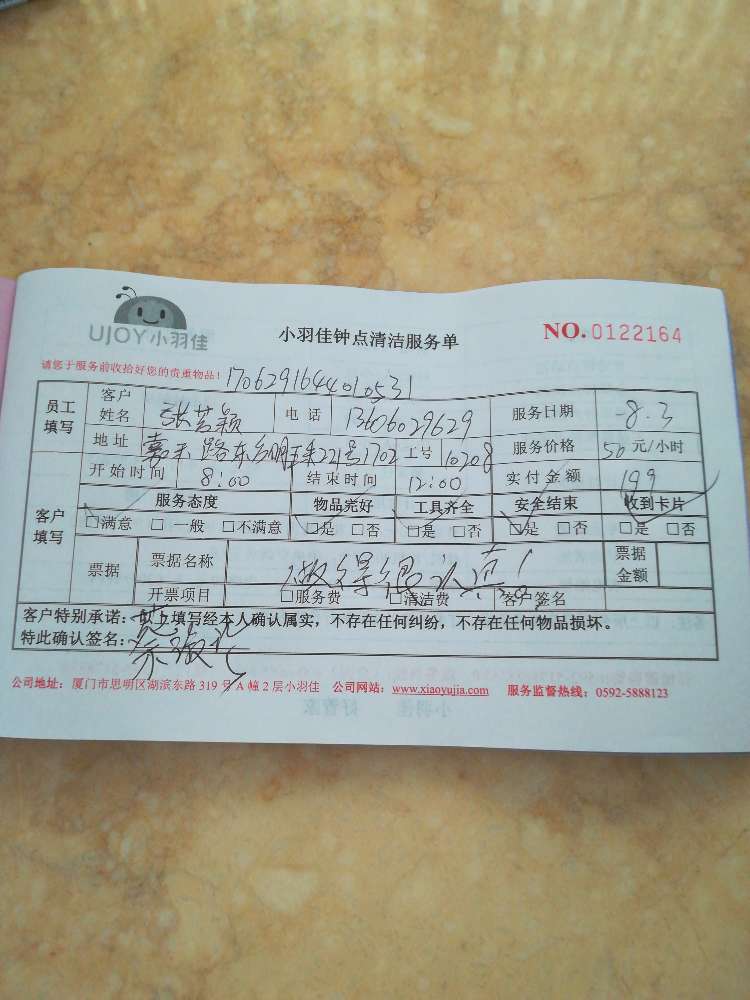 UJOY小羽佳
小羽佳钟点清洁服务单
NO.0122164
请您于服务前收拾好您的贵重物品! 1706291644010531
员工填写 客户姓名 张艺颖 电话 13606029629 服务日期 8.3
地址 嘉禾路东方明珠221号1702 工号 10208 服务价格 50元/小时
客户填写 开始时间 8:00 结束时间 12:00 实付金额 199
服务态度 物品完好 工具齐全 安全结束 收到卡片
□满意 □一般 □不满意 □是 □否 □是 □否 □是 □否 □是 □否
票据 票据名称 做得很认真! 票据金额
开票项目 □服务费 □清洁费 客户签名
客户特别承诺:以上填写经本人确认属实,不存在任何纠纷,不存在任何物品损坏。
特此确认签名:
公司地址:厦门市思明区湖滨东路319号A幢2层小羽佳 公司网站:www.xiaoyujia.com 服务监督热线:0592-5888123